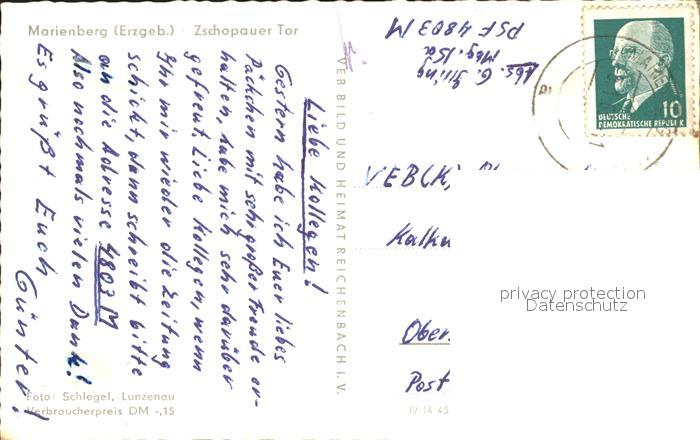 Marienberg (Erzgeb.) Zschopauer Tor
Liebe Kollegen!
Gestern habe ich Euer liebes
Päckchen mit sehr großer Freude er-
halten, habe mich sehr darüber
gefreut. Liebe Kollegen, wenn
Ihr mir wieder die Zeitung
schickt, dann schreibt bitte
an die Adresse 4803 M
Also nochmals vielen Dank!
Es grüßt Euch
Günter!
Foto: Schlegel, Lunzenau
Verbraucherpreis DM -,15
VEB BILD UND HEIMAT REICHENBACH i. V.
Abs. G.
PSF 4803 M
10
DEUTSCHE
DEMOKRATISCHE REPUBLIK
VEB (K)
Kalku
Ober
Post
IV 14 45
privacy protection
Datenschutz